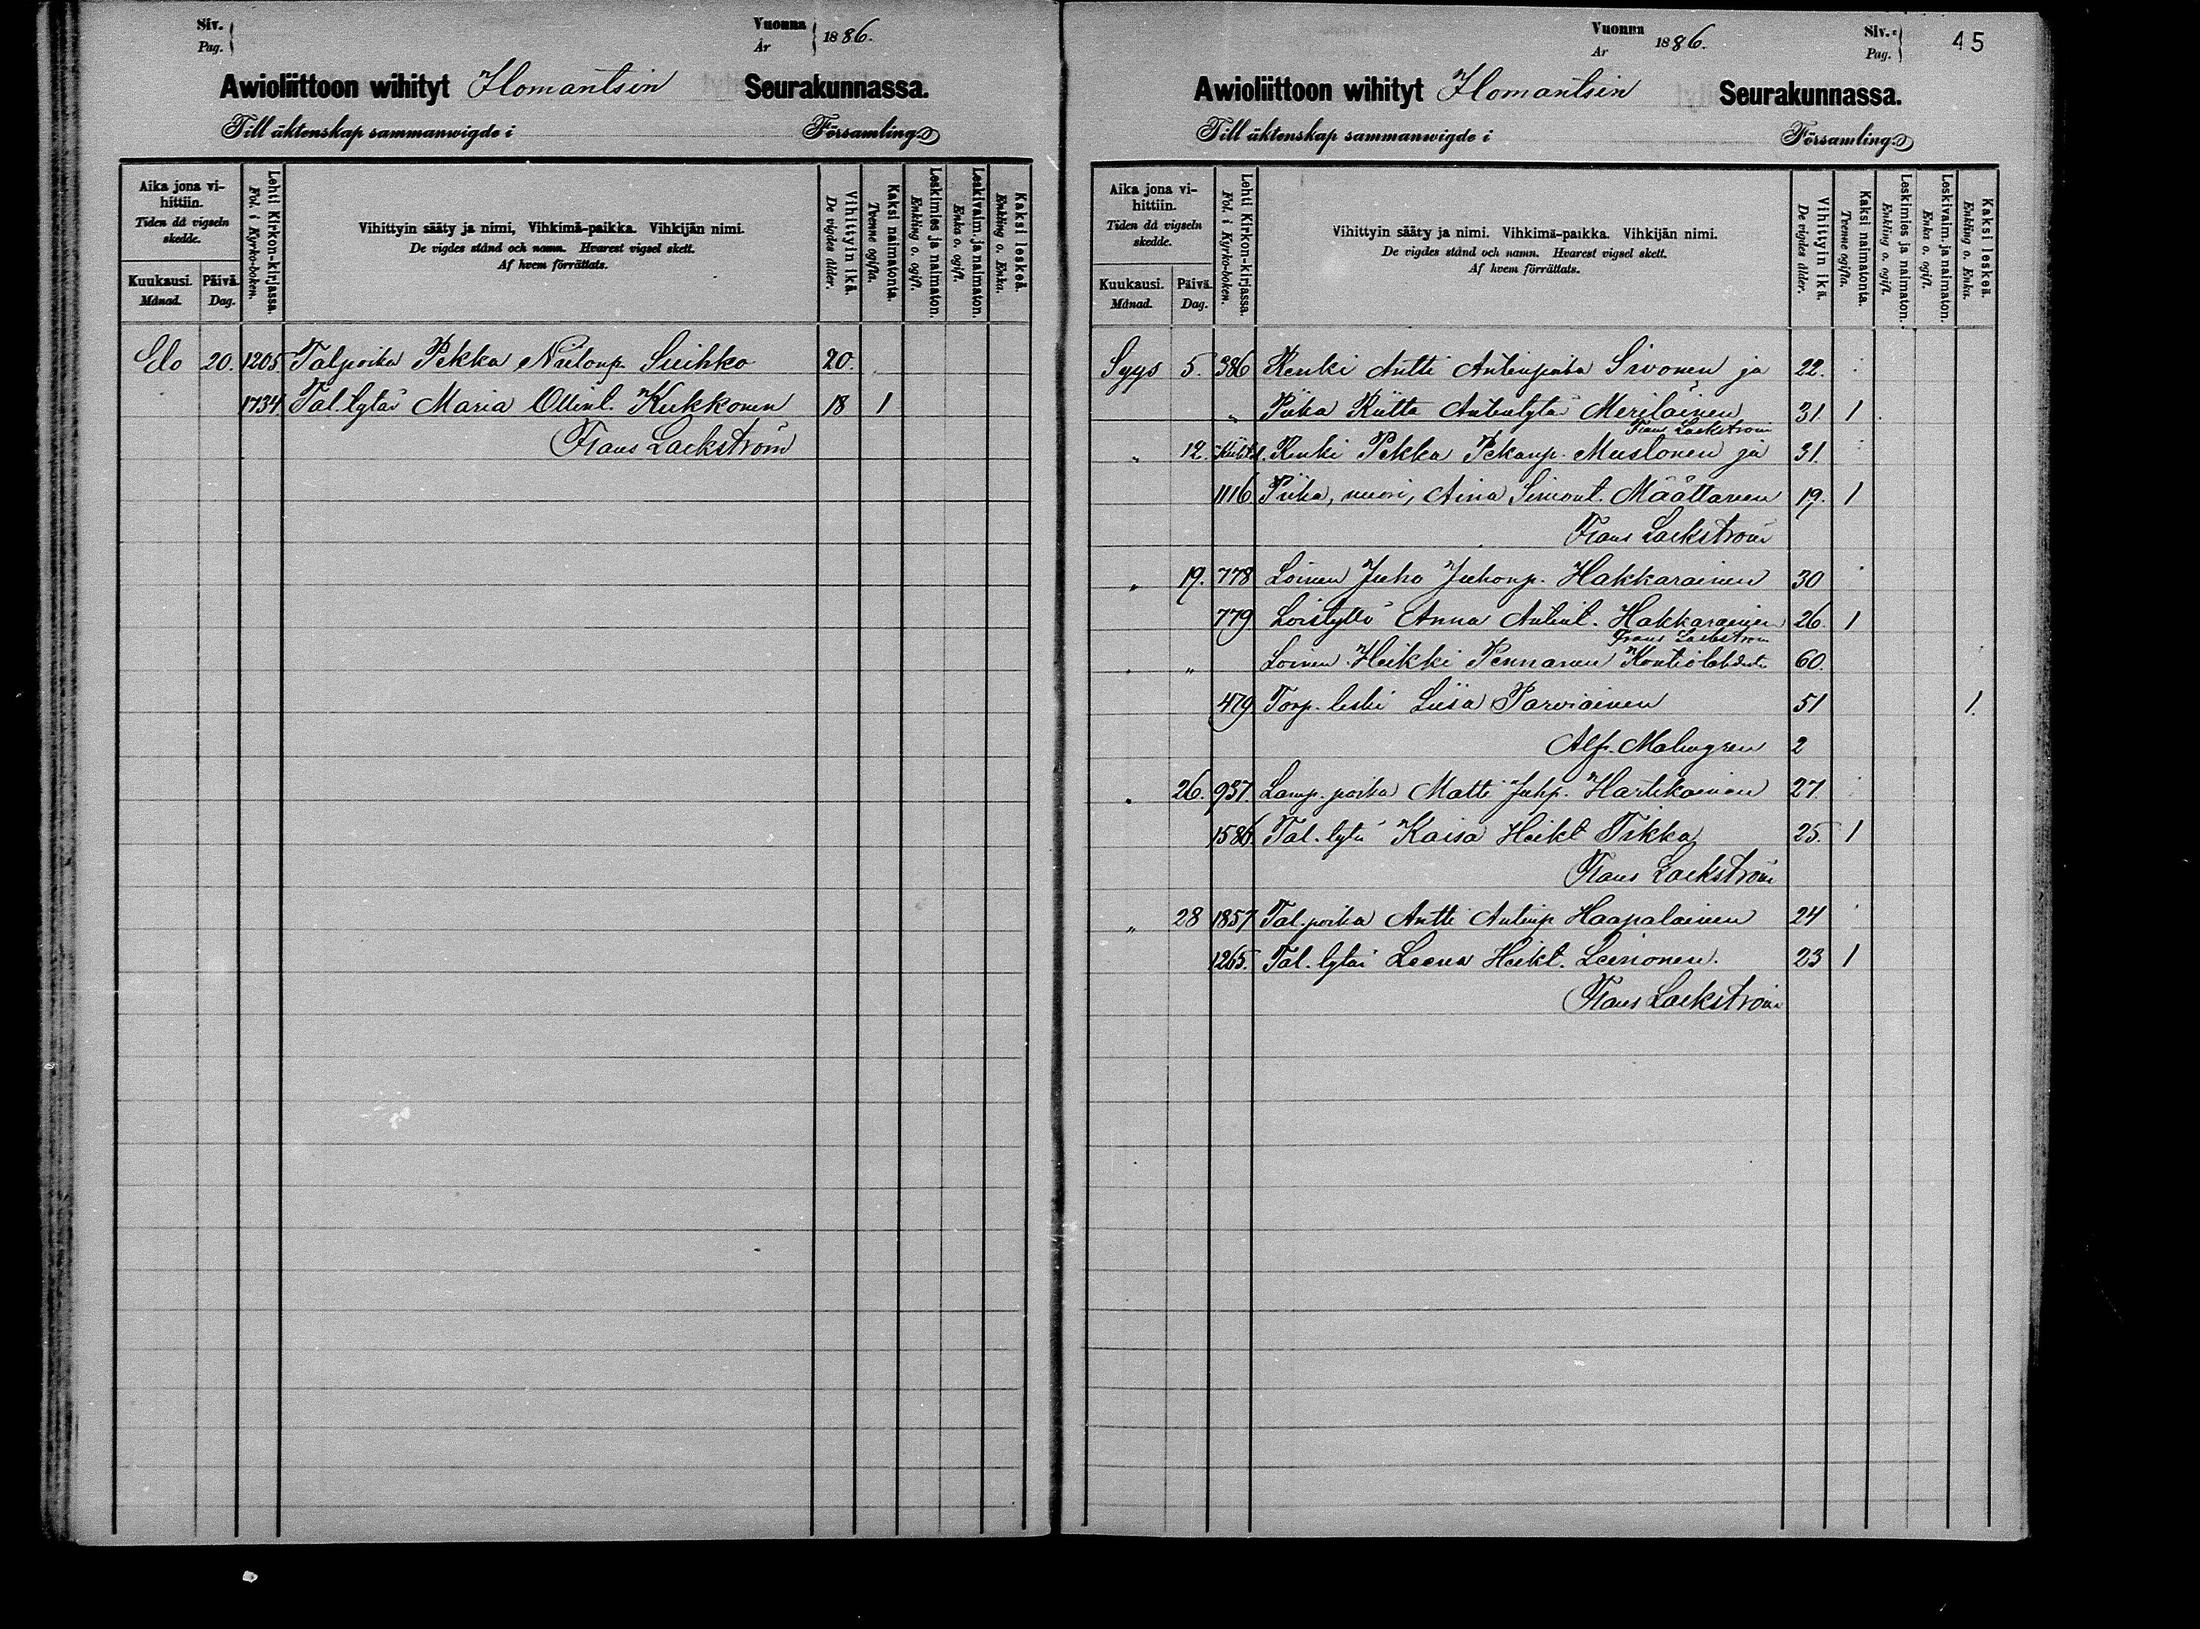 Siv.
Pag.
Vuonna
År
1886.
Awioliittoon wihityt Ilomantsin Seurakunnassa.
Till äktenskap sammanwigde i Församling.
Aika jona vi-
hittiin.
Tiden då vigseln
skedde.
Kuukausi.
Månad.
Päivä.
Dag.
Lehti Kirkon-kirjassa.
Fol. i Kyrko-boken.
Vihittyin sääty ja nimi, Vihkimä-paikka. Vihkijän nimi.
De vigdes stånd och namn. Hvarest vigsel skett.
Af hvem förrättats.
Vihittyin ikä.
De vigdes ålder.
Kaksi naimatonta.
Tvenne ogifta.
Leskimies ja naimaton.
Enkling o. ogift.
Leskivaim. ja naimaton.
Enka o. ogift.
Kaksi leskeä.
Enkling o. Enka.
Elo 20. 1205. Talpoika Pekka Suihko 20.
1734. Tal. tytär Maria Ollint. Kukkonen 18 1
Frans Lackström
Vuonna
År
1886.
Siv.
Pag.
45
Awioliittoon wihityt Ilomantsin Seurakunnassa.
Till äktenskap sammanwigde i Församling.
Aika jona vi-
hittiin.
Tiden då vigseln
skedde.
Kuukausi.
Månad.
Päivä.
Dag.
Lehti Kirkon-kirjassa.
Fol. i Kyrko-boken.
Vihittyin sääty ja nimi. Vihkimä-paikka. Vihkijän nimi.
De vigdes stånd och namn. Hvarest vigsel skett.
Af hvem förrättats.
Vihittyin ikä.
De vigdes ålder.
Kaksi naimatonta.
Tvenne ogifta.
Leskimies ja naimaton.
Enkling o. ogift.
Leskivaim. ja naimaton.
Enka o. ogift.
Kaksi leskeä.
Enkling o. Enka.
Syys 5. 386 Renki Antti Antinpoika Sivonen ja 22.
„ Piika Riitta Antintytär Meriläinen 31 1
Frans Lackström
„ 12. Renki Pekka Pekanp. Mustonen ja 31.
1116 Piika, nuori, Aina Simont. Määttänen 19. 1
Frans Lackström
„ 19. 778 Loinen Juho Juhonp. Hakkarainen 30
779 Loistyttö Anna Antint. Hakkarainen 26. 1
Frans Lackström
„ „ Loinen Heikki Pennanen Kontiolahdesta 60.
479 Torp. leski Liisa Parviainen 51 1.
Alf. Malmgren 2
„ 26. 937. Lamp. poika Matti Juhp. Hartikainen 27.
1586. Tal. tytär Kaisa Heikt Tikka 25. 1
Frans Lackström
„ 28 1857 Tal. poika Antti Antinp Haapalainen 24
1265. Tal. tytär Leena Heikt. Leinonen. 23 1
Frans Lackström